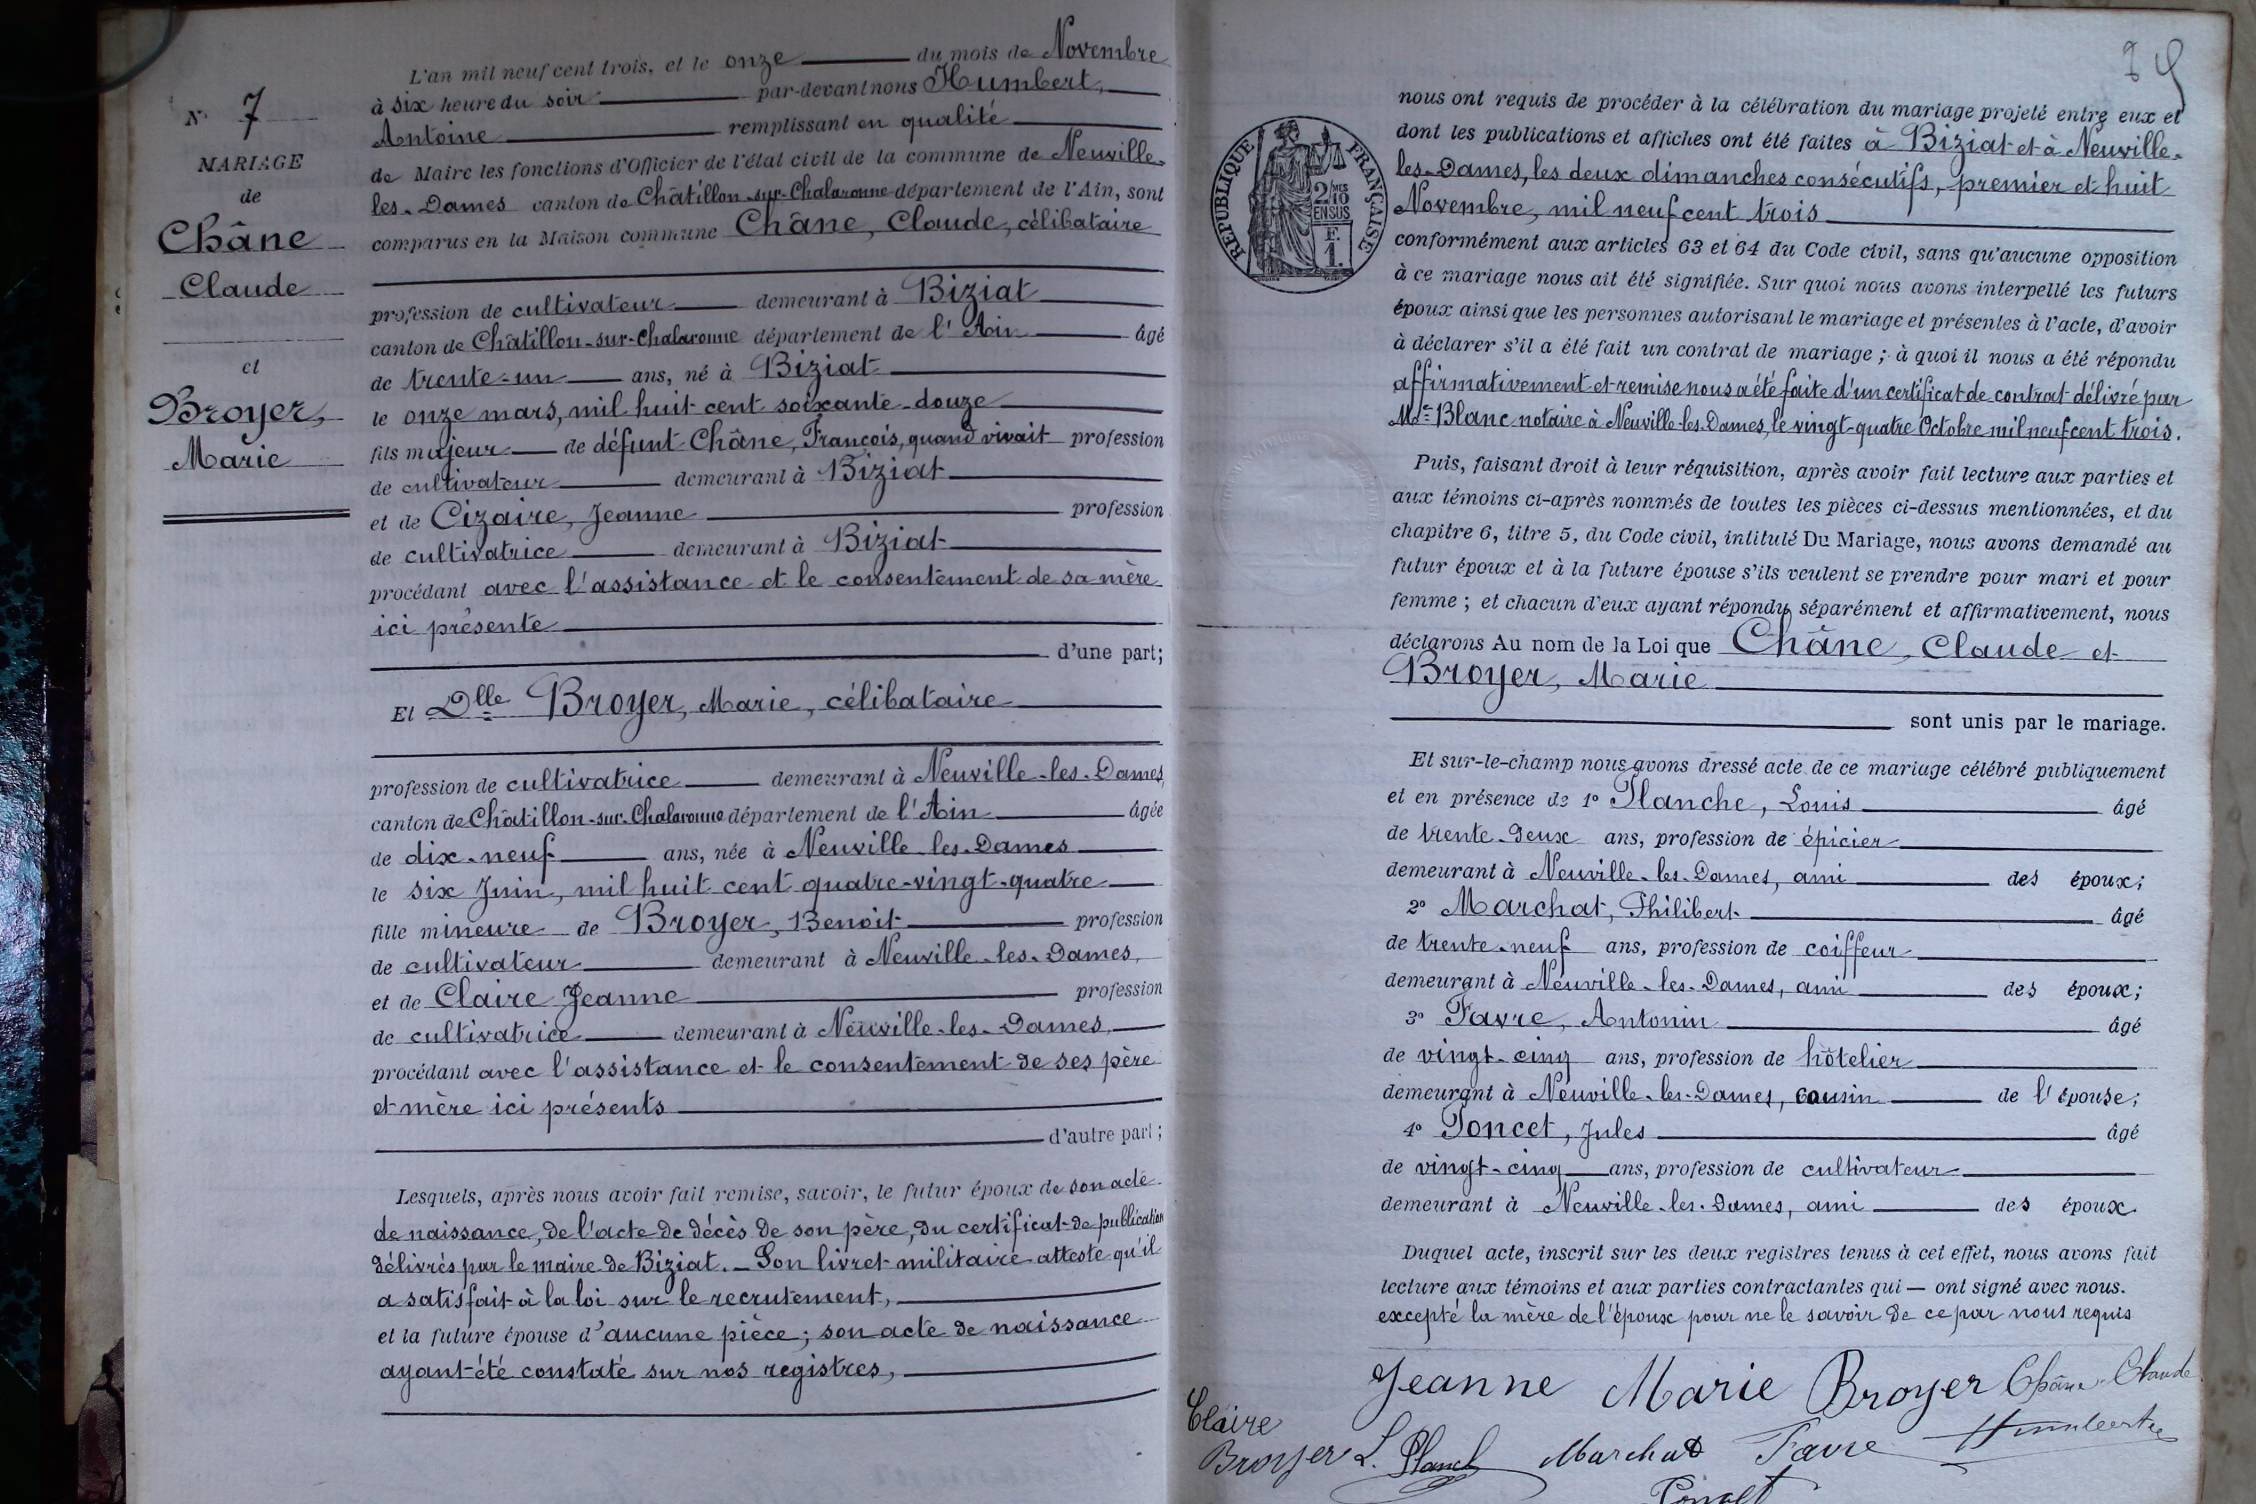 N° 7
MARIAGE
de
Châne
Claude
et
Broyer,
Marie
L'an mil neuf cent trois, et le onze du mois de Novembre
à six heure du soir par-devant nous Humbert,
Antoine remplissant en qualité
de Maire les fonctions d'Officier de l'état civil de la commune de Neuville-
les-Dames canton de Châtillon-sur-Chalaronne département de l'Ain, sont
comparus en la Maison commune Châne, Claude, célibataire
profession de cultivateur demeurant à Biziat
canton de Châtillon-sur-Chalaronne département de l'Ain âgé
de trente-un ans, né à Biziat
le onze mars, mil huit cent soixante-douze
fils majeur de défunt Châne, François, quand vivait profession
de cultivateur demeurant à Biziat
et de Cizaire, Jeanne profession
de cultivatrice demeurant à Biziat
procédant avec l'assistance et le consentement de sa mère
ici présente
d'une part;
Et Dlle Broyer, Marie, célibataire
profession de cultivatrice demeurant à Neuville-les-Dames
canton de Châtillon-sur-Chalaronne département de l'Ain âgée
de dix-neuf ans, née à Neuville-les-Dames
le six Juin, mil huit cent quatre-vingt-quatre
fille mineure de Broyer, Benoit profession
de cultivateur demeurant à Neuville-les-Dames,
et de Claire Jeanne profession
de cultivatrice demeurant à Neuville-les-Dames,
procédant avec l'assistance et le consentement de ses père
et mère ici présents
d'autre part;
Lesquels, après nous avoir fait remise, savoir, le futur époux de son acte
de naissance, de l'acte de décès de son père, du certificat de publication
délivrés par le maire de Biziat. - Son livret militaire atteste qu'il
a satisfait à la loi sur le recrutement,
et la future épouse d'aucune pièce; son acte de naissance
ayant été constaté sur nos registres,
RÉPUBLIQUE FRANÇAISE
2/10 MES
EN SUS
F.
1.
nous ont requis de procéder à la célébration du mariage projeté entre eux et
dont les publications et affiches ont été faites à Biziat et à Neuville-
les-Dames, les deux dimanches consécutifs, premier et huit
Novembre, mil neuf cent trois
conformément aux articles 63 et 64 du Code civil, sans qu'aucune opposition
à ce mariage nous ait été signifiée. Sur quoi nous avons interpellé les futurs
époux ainsi que les personnes autorisant le mariage et présentes à l'acte, d'avoir
à déclarer s'il a été fait un contrat de mariage; à quoi il nous a été répondu
affirmativement et remise nous a été faite d'un certificat de contrat délivré par
Me Blanc notaire à Neuville-les-Dames, le vingt-quatre Octobre mil neuf cent trois.
Puis, faisant droit à leur réquisition, après avoir fait lecture aux parties et
aux témoins ci-après nommés de toutes les pièces ci-dessus mentionnées, et du
chapitre 6, titre 5, du Code civil, intitulé Du Mariage, nous avons demandé au
futur époux et à la future épouse s'ils veulent se prendre pour mari et pour
femme; et chacun d'eux ayant répondu séparément et affirmativement, nous
déclarons Au nom de la Loi que Châne, Claude et
Broyer, Marie
sont unis par le mariage.
Et sur-le-champ nous avons dressé acte de ce mariage célébré publiquement
et en présence de 1° Planche, Louis âgé
de trente-deux ans, profession de épicier
demeurant à Neuville-les-Dames, ami des époux;
2° Marchat, Philibert âgé
de trente-neuf ans, profession de coiffeur
demeurant à Neuville-les-Dames, ami des époux;
3° Favre, Antonin âgé
de vingt-cinq ans, profession de hôtelier
demeurant à Neuville-les-Dames, cousin de l'épouse;
4° Poncet, Jules âgé
de vingt-cinq ans, profession de cultivateur
demeurant à Neuville-les-Dames, ami des époux.
Duquel acte, inscrit sur les deux registres tenus à cet effet, nous avons fait
lecture aux témoins et aux parties contractantes qui — ont signé avec nous.
excepté la mère de l'époux pour ne le savoir de ce par nous requis
Jeanne Marie Broyer Châne Claude
Claire
Broyer L. Planch Marchat Favre Humbert
Poncet